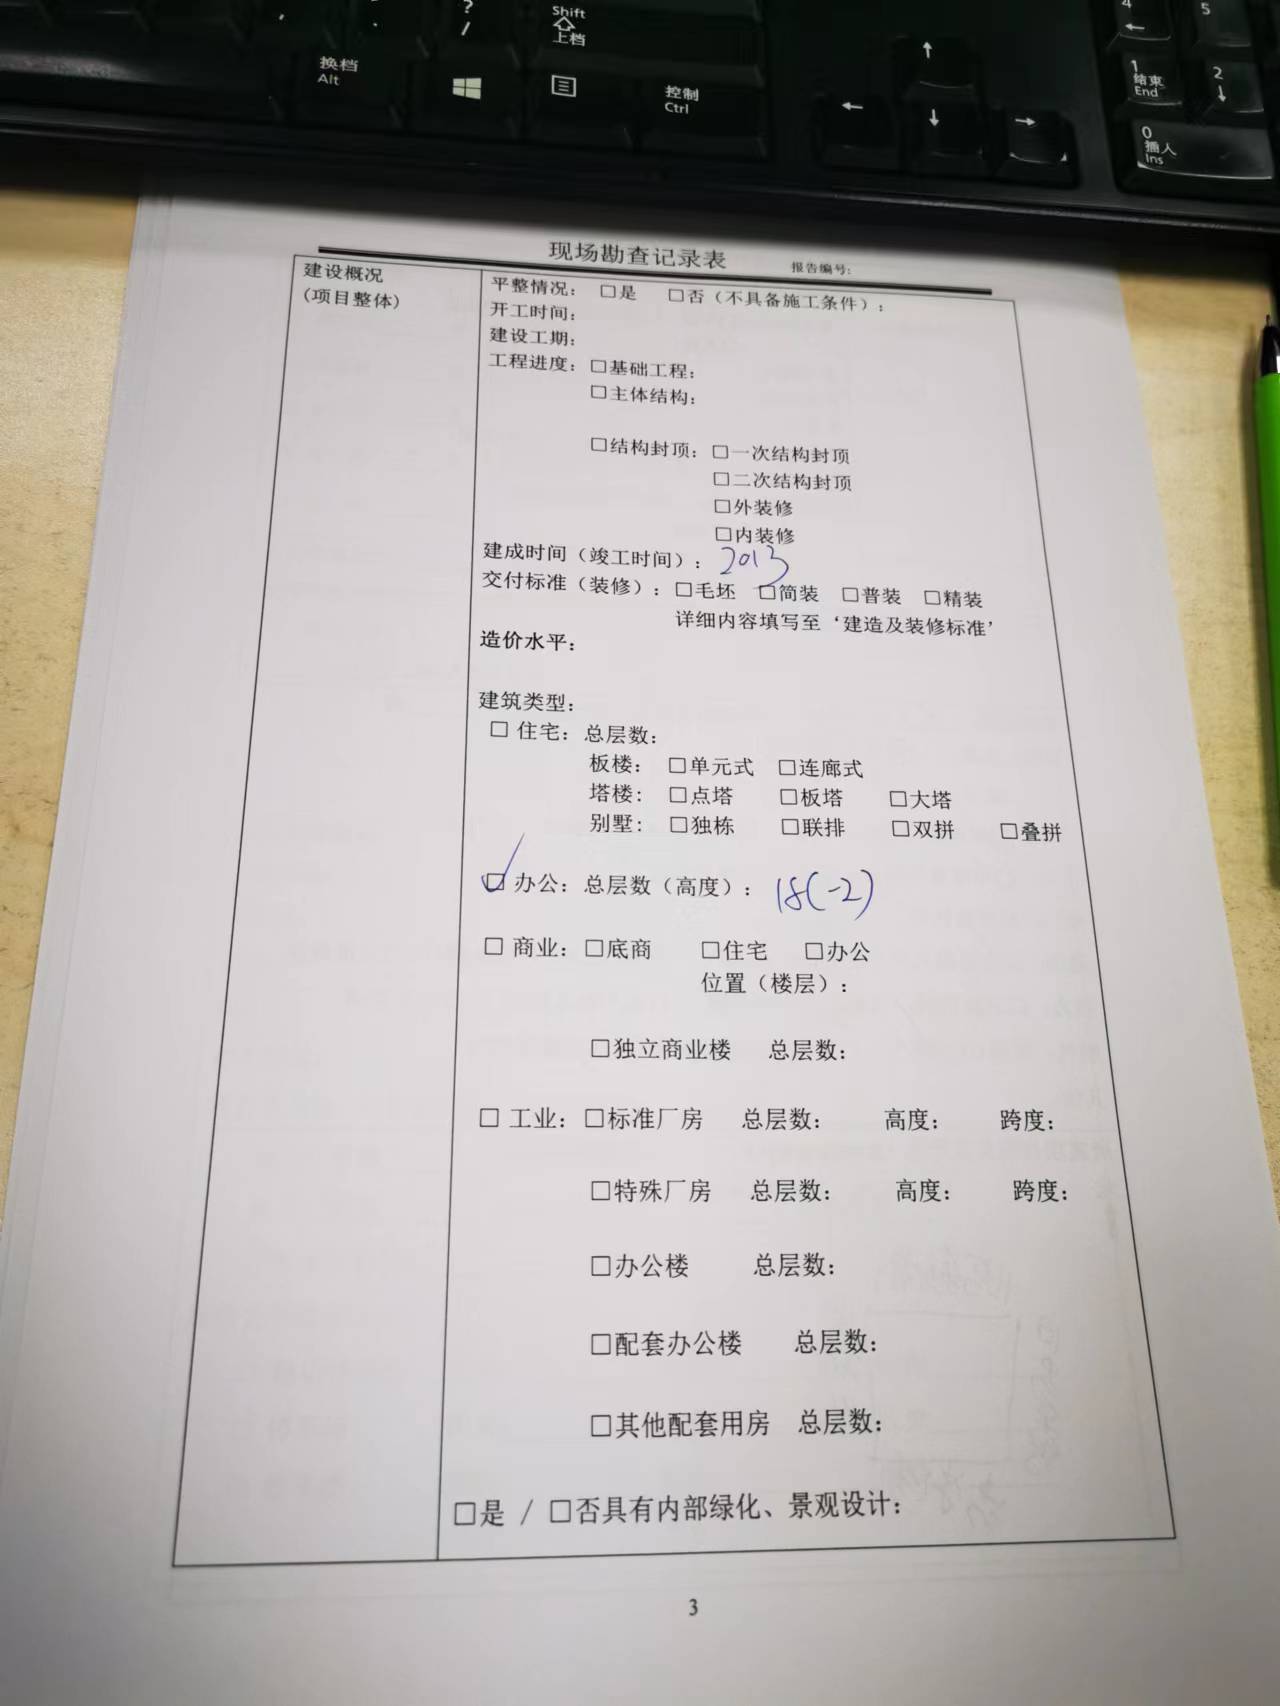 ?
/
Shift
上档
换档
Alt
控制
Ctrl
4
5
1
结束
End
2
0
插入
Ins
现场勘查记录表 报告编号:
建设概况
(项目整体)
平整情况: □是 □否(不具备施工条件):
开工时间:
建设工期:
工程进度: □基础工程:
□主体结构:
□结构封顶: □一次结构封顶
□二次结构封顶
□外装修
□内装修
建成时间(竣工时间): 2013
交付标准(装修): □毛坯 □简装 □普装 □精装
详细内容填写至‘建造及装修标准’
造价水平:
建筑类型:
□ 住宅: 总层数:
板楼: □单元式 □连廊式
塔楼: □点塔 □板塔 □大塔
别墅: □独栋 □联排 □双拼 □叠拼
☑ 办公: 总层数(高度): 18(-2)
□ 商业: □底商 □住宅 □办公
位置(楼层):
□独立商业楼 总层数:
□ 工业: □标准厂房 总层数: 高度: 跨度:
□特殊厂房 总层数: 高度: 跨度:
□办公楼 总层数:
□配套办公楼 总层数:
□其他配套用房 总层数:
□是 / □否具有内部绿化、景观设计:
3